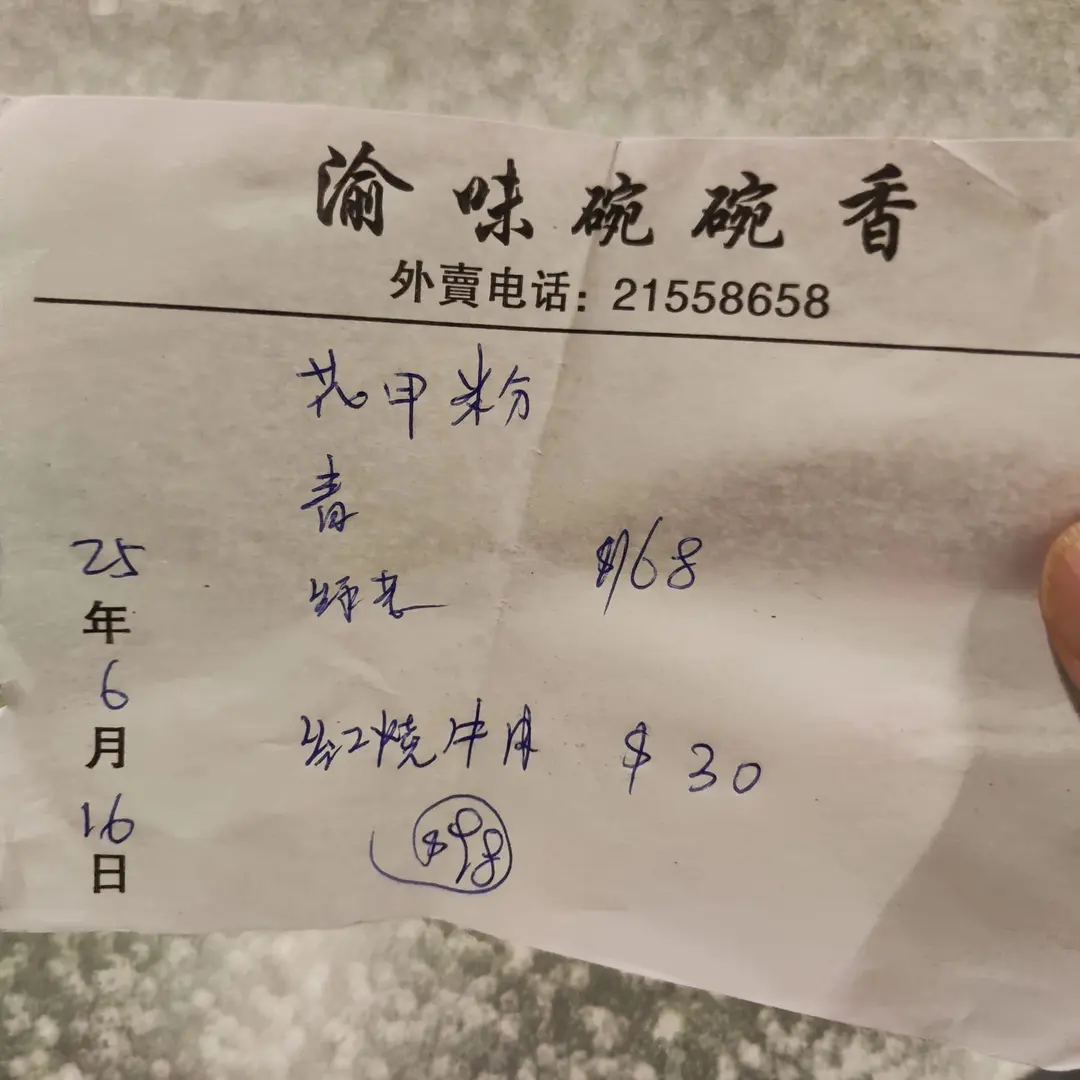 渝味碗碗香
外賣电话：21558658
花甲粉
青
$68
红燒牛月
$30
$98
25
年
6
月
16
日